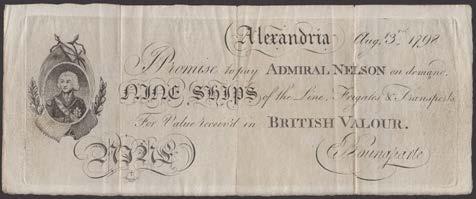 Alexandria Aug. 3rd 1798
I Promise to pay ADMIRAL NELSON on demand
NINE SHIPS of the Line, Frigates & Transports
For Value receiv'd in BRITISH VALOUR.
NINE Buonaparte